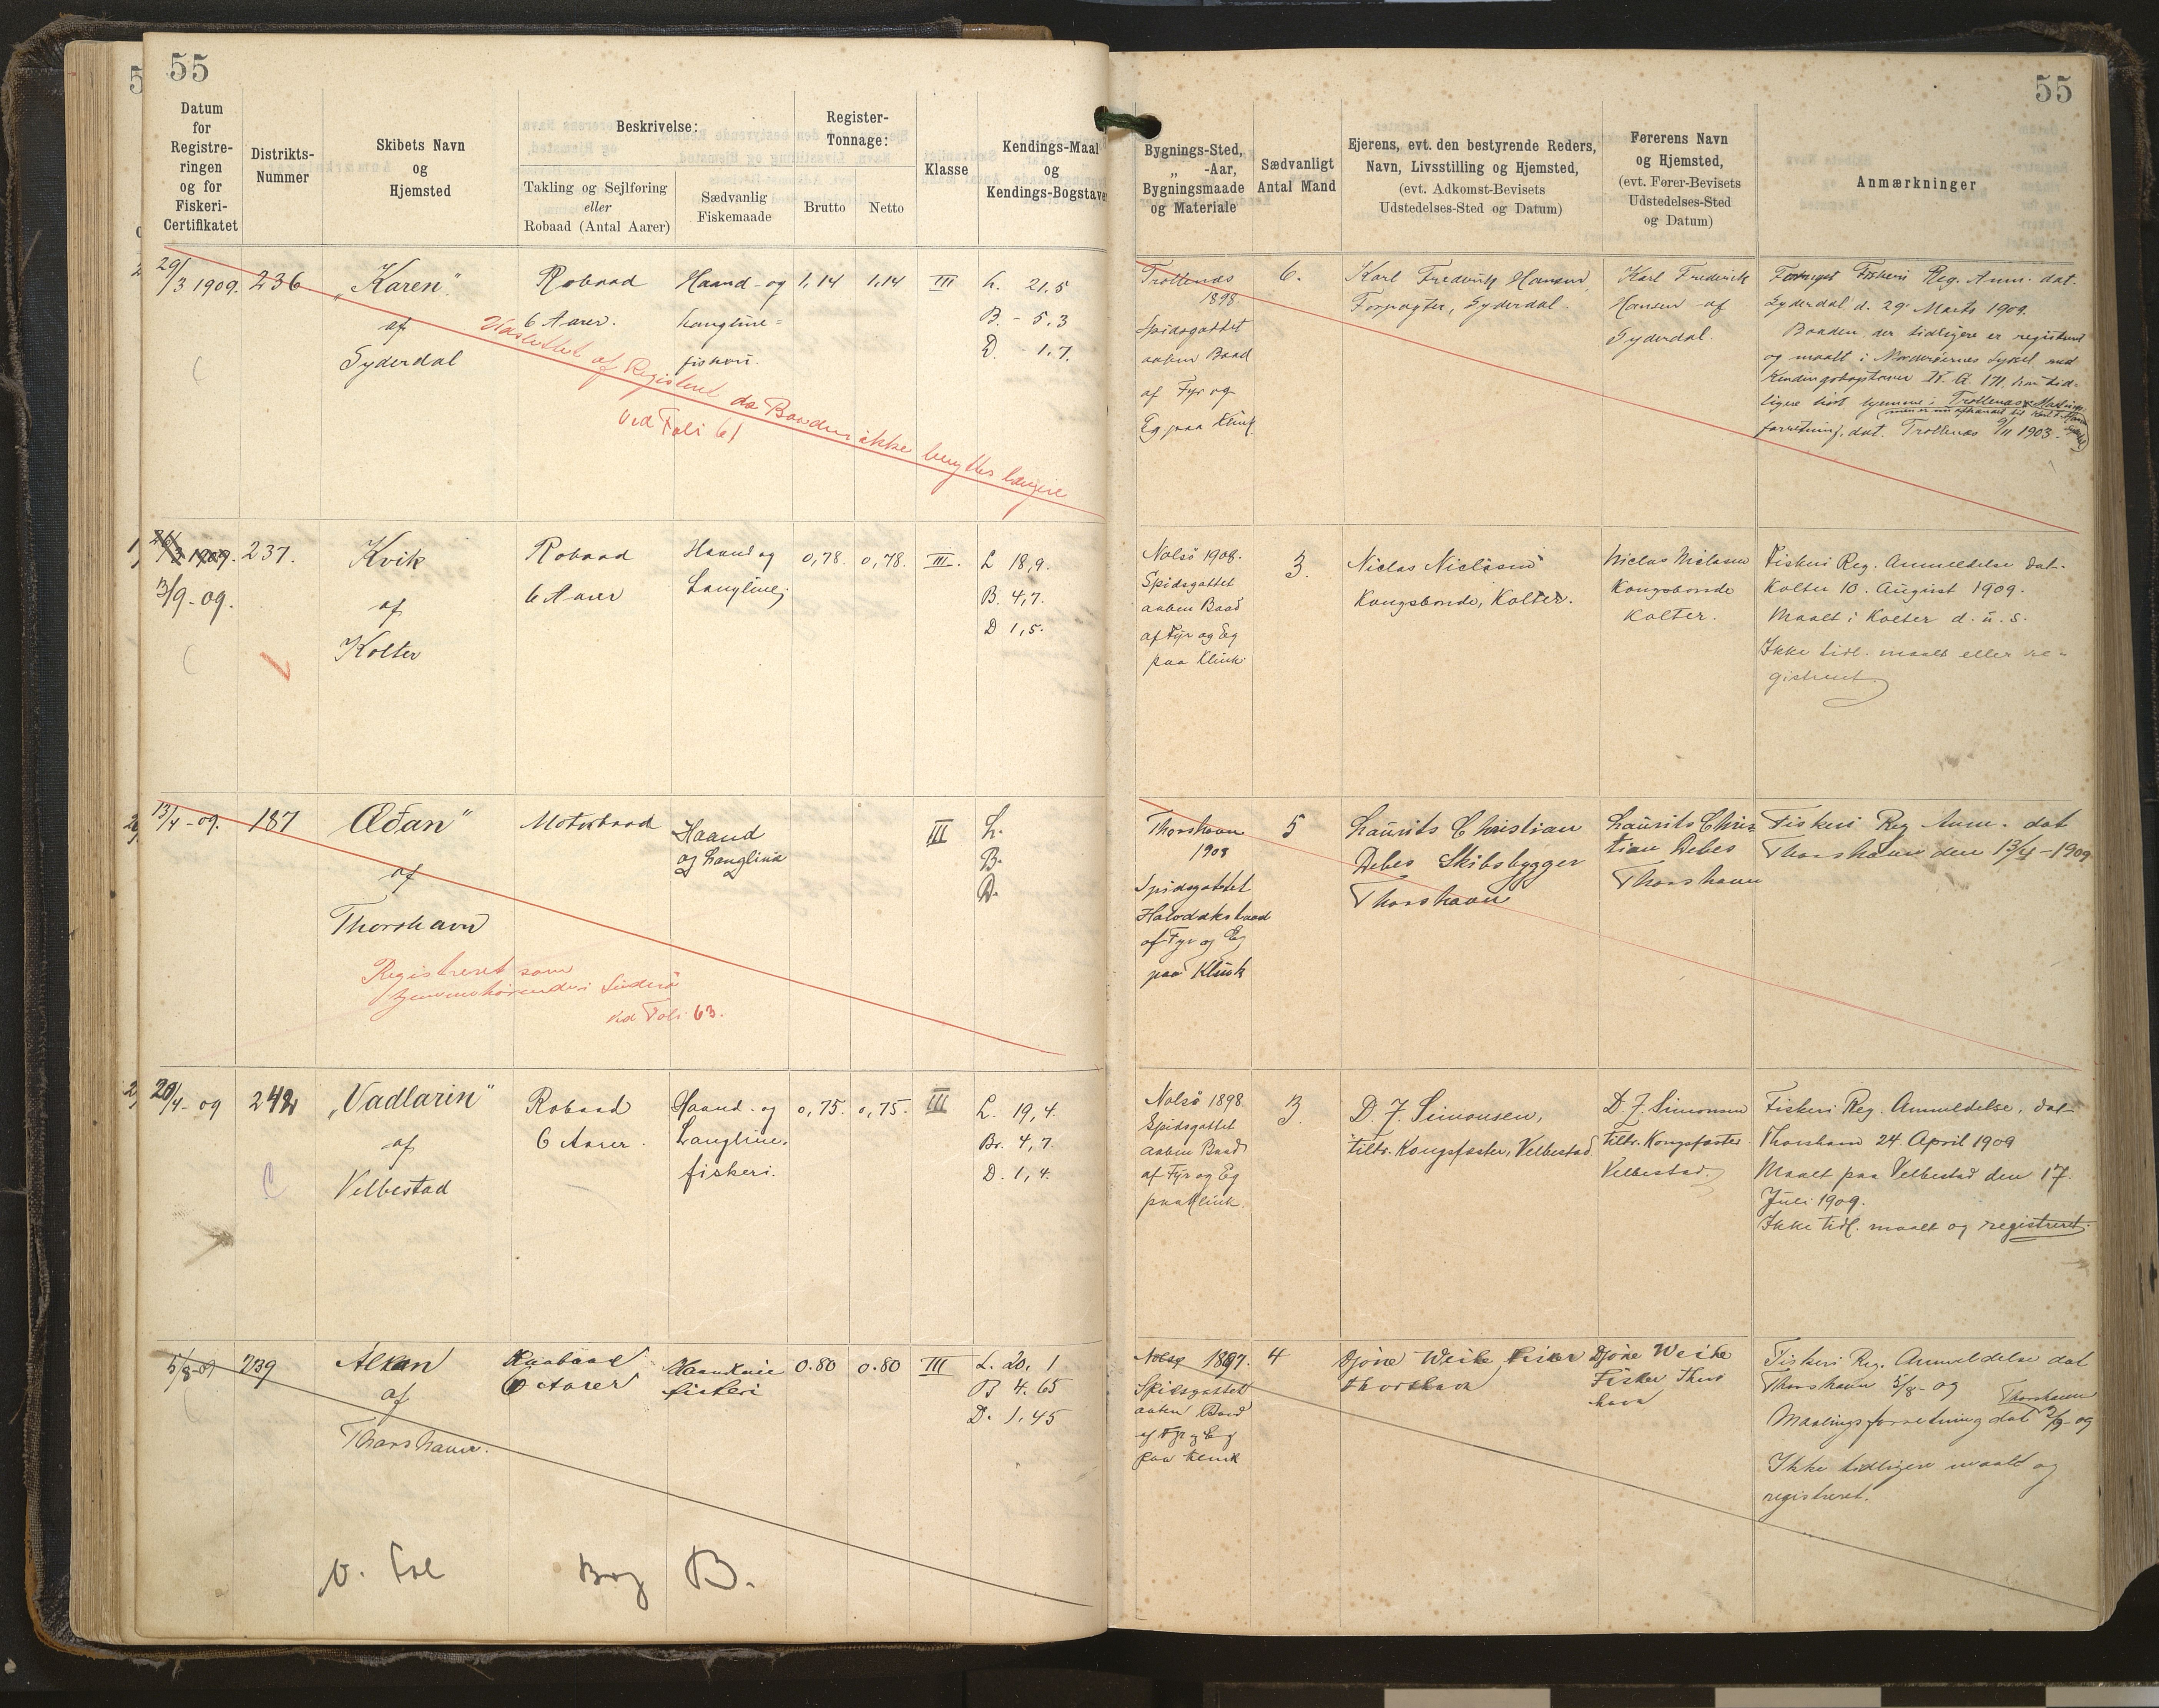 55
55
Datum
for
Registre-
ringen
og for
Fiskeri-
Certifikatet
Distrikts-
Nummer
Skibets Navn
og
Hjemsted
Beskrivelse:
Takling og Sejlføring
eller
Robaad (Antal Aarer)
Sædvanlig
Fiskemaade
Register-
Tonnage:
Brutto
Netto
Klasse
Kendings-Maal
og
Kendings-Bogstaver
Bygnings-Sted,
„ -Aar,
Bygningsmaade
og Materiale
Sædvanligt
Antal Mand
Ejerens, evt. den bestyrende Reders,
Navn, Livsstilling og Hjemsted,
(evt. Adkomst-Bevisets
Udstedelses-Sted og Datum)
Førerens Navn
og Hjemsted,
(evt. Fører-Bevisets
Udstedelses-Sted
og Datum)
Anmærkninger
29/3 1909.
236
„Karen"
af
Syderdal
Robaad
6 Aarer.
Haand- og
Langline-
fiskeri.
1,14
1,14
III
L. 21.5
B. - 5.3
D. - 1.7.
Udslettet af Registret da Baaden ikke benyttes længere
ved Foli 61
Trollenæs
1898.
Spidsgattet
aaben Baad
af Fyr og
Eg paa Klink
6.
Karl Frederik Hansen,
Forpagter, Syderdal.
Karl Frederik
Hansen af
Syderdal.
Fiskeri Reg. Anm. dat.
Syderdal d. 29 Marts 1909.
Baaden, der tidligere er registreret
og maalt i Norderøernes Syssel med
Kendingsbogstaver N. A. 171, har tid-
ligere hørt hjemme i Trollenæs.
forretning, dat. Trollenæs 9/11 1903.
26/3 1909.
13/9-09.
237.
Kvik
af
Kolter
Robaad
6 Aarer
Haand og
Langline
0,78.
0,78.
III.
L 18,9.
B. 4,7.
D 1,5.
Nolsö 1908.
Spidsgattet
aaben Baad
af Fyr og Eg
paa Klink.
3.
Niclas Niclasen
Kongsbonde, Kolter.
Niclas Niclasen
Kongsbonde
Kolter.
Fiskeri Reg. Anmeldelse dat.
Kolter 10. August 1909.
Maalt i Kolter d. u. s.
Ikke tidl. maalt eller re-
gistreret
13/4-09.
187
Æðan"
af
Thorshavn
Motorbaad
Haand
og Langline
III
L.
B.
D.
Registreret som
hjemmehørende i Suderø
ved Foli 63.
Thorshavn
1908
Spidsgattet
Halvdæksbaad
af Fyr og Eg
paa Klink
5
Laurits Christian
Debes Skibsbygger
Thorshavn
Laurits Chris
tian Debes
Thorshavn
Fiskeri Reg Anm. dat
Thorshavn den 13/4-1909
20/4-09
242
„Vadlarin"
af
Velbestad
Robaad
6 Aarer.
Haand- og
Langline-
fiskeri.
0,75.
0,75.
III
L. 19,4.
Br. 4,7.
D. 1,4.
Nolsö 1898.
Spidsgattet
aaben Baad
af Fyr og Eg
paa Klink.
3.
D. J. Simonsen,
tiltr. Kongsfæster, Velbestad
D. J. Simonsen
tiltr. Kongsfæster
Velbestad.
Fiskeri Reg. Anmeldelse, dat.
Thorshavn 24. April 1909
Maalt paa Velbestad den 17.
Juli 1909.
Ikke tidl. maalt og registreret.
5/8-09
239
Alkan
af
Thorshavn.
Roabaad
6 Aarer
fiskeri
0.80
0.80
III
L. 20, 1
B 4.65
D. 1,45
v. Fol Bog B.
Nolsø 1897.
Spidsgattet
aaben Baad
af Fyr og Eg
paa Klink
4
Djone Weihe Fisker
Thorshavn
Djone Weihe
Fisker Thors
havn
Fiskeri Reg. Anmeldelse dat
Thorshavn 5/8-09
Thorshavn
Maalingsforretning dat 2/9-09
Ikke tidligere maalt og
registreret.